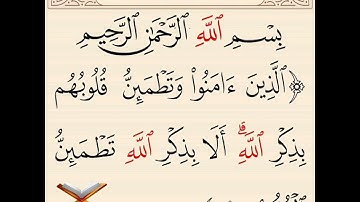 بِسْمِ ٱللَّهِ ٱلرَّحْمَٰنِ ٱلرَّحِيمِ
﴿ٱلَّذِينَ ءَامَنُوا۟ وَتَطْمَئِنُّ قُلُوبُهُم
بِذِكْرِ ٱللَّهِ ۗ أَلَا بِذِكْرِ ٱللَّهِ تَطْمَئِنُّ